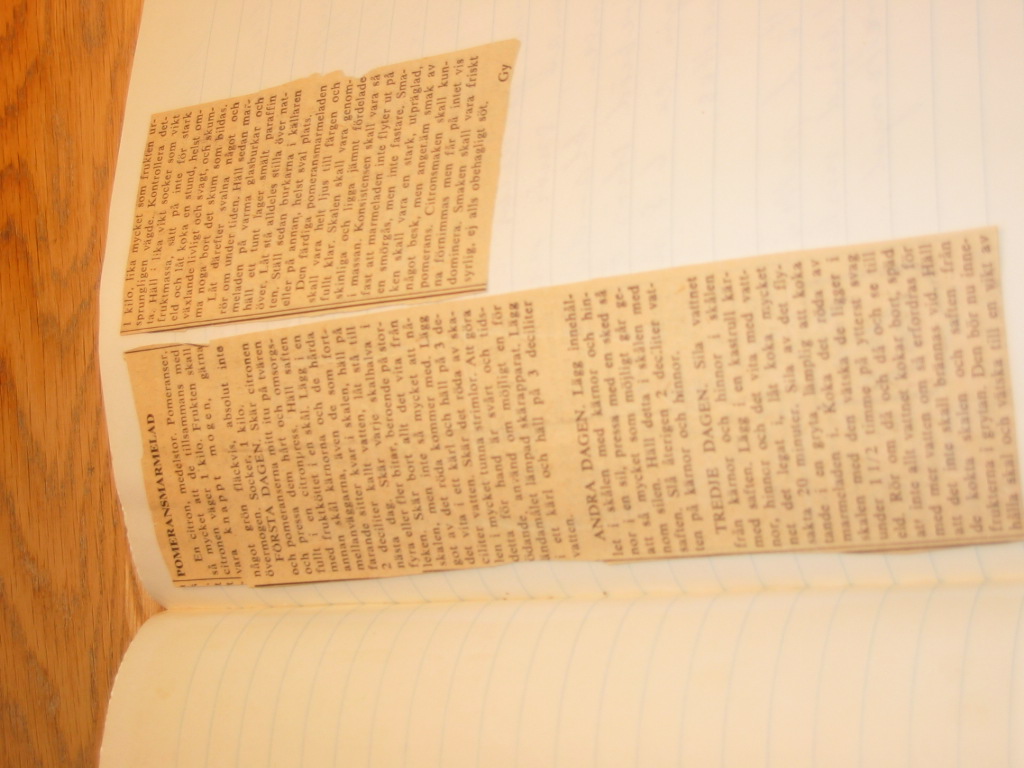 POMERANSMARMELAD
En citron, medelstor. Pomeranser,
så mycket att de tillsammans med
citronen väger 1 kilo. Frukten skall
vara knappt mogen, gärna
något grön fläckvis, absolut inte
övermogen. Socker, 1 kilo.
FÖRSTA DAGEN. Skär citronen
och pomeranserna mitt itu på tvären
och pressa dem hårt och omsorgs-
fullt i en citronpress. Häll saften
med fruktköttet i en skål. Lägg i en
annan skål kärnorna och de hårda
mellanväggarna, även de som fort-
farande sitter kvar i skalen, häll på
2 deciliter kallt vatten, låt stå till
nästa dag. Skär varje skalhalva i
fyra eller fler bitar, beroende på stor-
leken. Skär bort allt det vita från
skalen, men inte så mycket att nå-
got av det röda kommer med. Lägg
det vita i ett kärl och häll på 3 de-
ciliter vatten. Skär det röda av ska-
len i mycket tunna strimlor. Att göra
detta för hand är svårt och tids-
ödande, använd om möjligt en för
ändamålet lämpad skärapparat. Lägg
i ett kärl och häll på 3 deciliter
vatten.
ANDRA DAGEN. Lägg innehål-
let i skålen med kärnor och hin-
nor i en sil, pressa med en sked så
att så mycket som möjligt går ge-
nom silen. Häll detta i skålen med
saften. Slå återigen 2 deciliter vat-
ten på kärnor och hinnor.
TREDJE DAGEN. Sila vattnet
från kärnor och hinnor i skålen
med saften. Lägg i en kastrull kär-
nor, hinnor och det vita med vatt-
net det legat i, låt koka mycket
sakta 20 minuter. Sila av det fly-
tande i en gryta, lämplig att koka
marmeladen i. Koka det röda av
skalen med den vätska de ligger i
under 1 1/2 timme på ytterst svag
eld, rör om ibland och se till
att inte allt vattnet kokar bort, späd
med mer vatten om så erfordras för
att det inte skall brännas vid. Häll
de kokta skalen och saften från
frukterna i grytan. Den bör nu inne-
hålla skal och vätska till en vikt av
1 kilo, lika mycket som frukten ur-
sprungligen vägde. Kontrollera det-
ta. Häll i lika vikt socker som vikt
fruktmassa, sätt på inte för stark
eld och låt koka en stund, helst om-
växlande livligt och svagt, och skum-
ma noga bort det skum som bildas.
Låt därefter svalna något och
rör om under tiden. Häll sedan mar-
meladen på varma glasburkar och
häll ett tunt lager smält paraffin
över. Låt stå alldeles stilla över nat-
ten. Ställ sedan burkarna i källaren
eller på annan, helst sval plats.
Den färdiga pomeransmarmeladen
skall vara helt ljus till färgen och
fullt klar. Skalen skall vara genom-
skinliga och ligga jämnt fördelade
i massan. Konsistensen skall vara så
fast att marmeladen inte flyter ut på
en smörgås, men inte fastare. Sma-
ken skall vara en stark, utpräglad,
något besk, men angenäm smak av
pomerans. Citronsmaken skall kun-
na förnimmas men får på intet vis
dominera. Smaken skall vara friskt
syrlig, ej alls obehagligt söt.
Gy